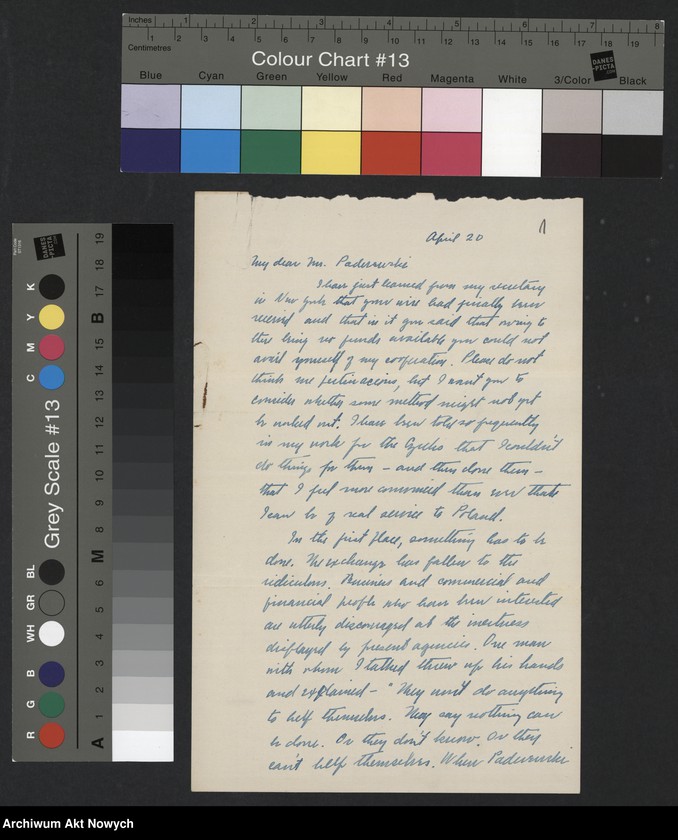 Inches 1 2 3 4 5 6 7 8
Centimetres 1 2 3 4 5 6 7 8 9 10 11 12 13 14 15 16 17 18 19
Colour Chart #13
DANES-PICTA.COM
Blue Cyan Green Yellow Red Magenta White 3/Color Black
Grey Scale #13
DANES-PICTA.COM
K Y M C BL GR WH B G R
A 1 2 3 4 5 6 M 8 9 10 11 12 13 14 15 B 17 18 19
1
April 20
My dear Mr. Paderewski
I have just learned from my secretary
in New York that your wire had finally been
received and that in it you said that owing to
there being no funds available you could not
avail yourself of my cooperation. Please do not
think me pertinacious, but I want you to
consider whether some method might not yet
be worked out. I have been told so frequently
in my work for the Czechs that I couldn't
do things for them - and then done them -
that I feel more convinced than ever that
I can be of real service to Poland.
In the first place, something has to be
done. The exchange has fallen to the
ridiculous. Business and commercial and
financial people who have been interested
are utterly discouraged at the inertness
displayed by present agencies. One man
with whom I talked threw up his hands
and explained - "They won't do anything
to help themselves. They say nothing can
be done. Or they don't know. Or they
can't help themselves. When Paderewski
Archiwum Akt Nowych